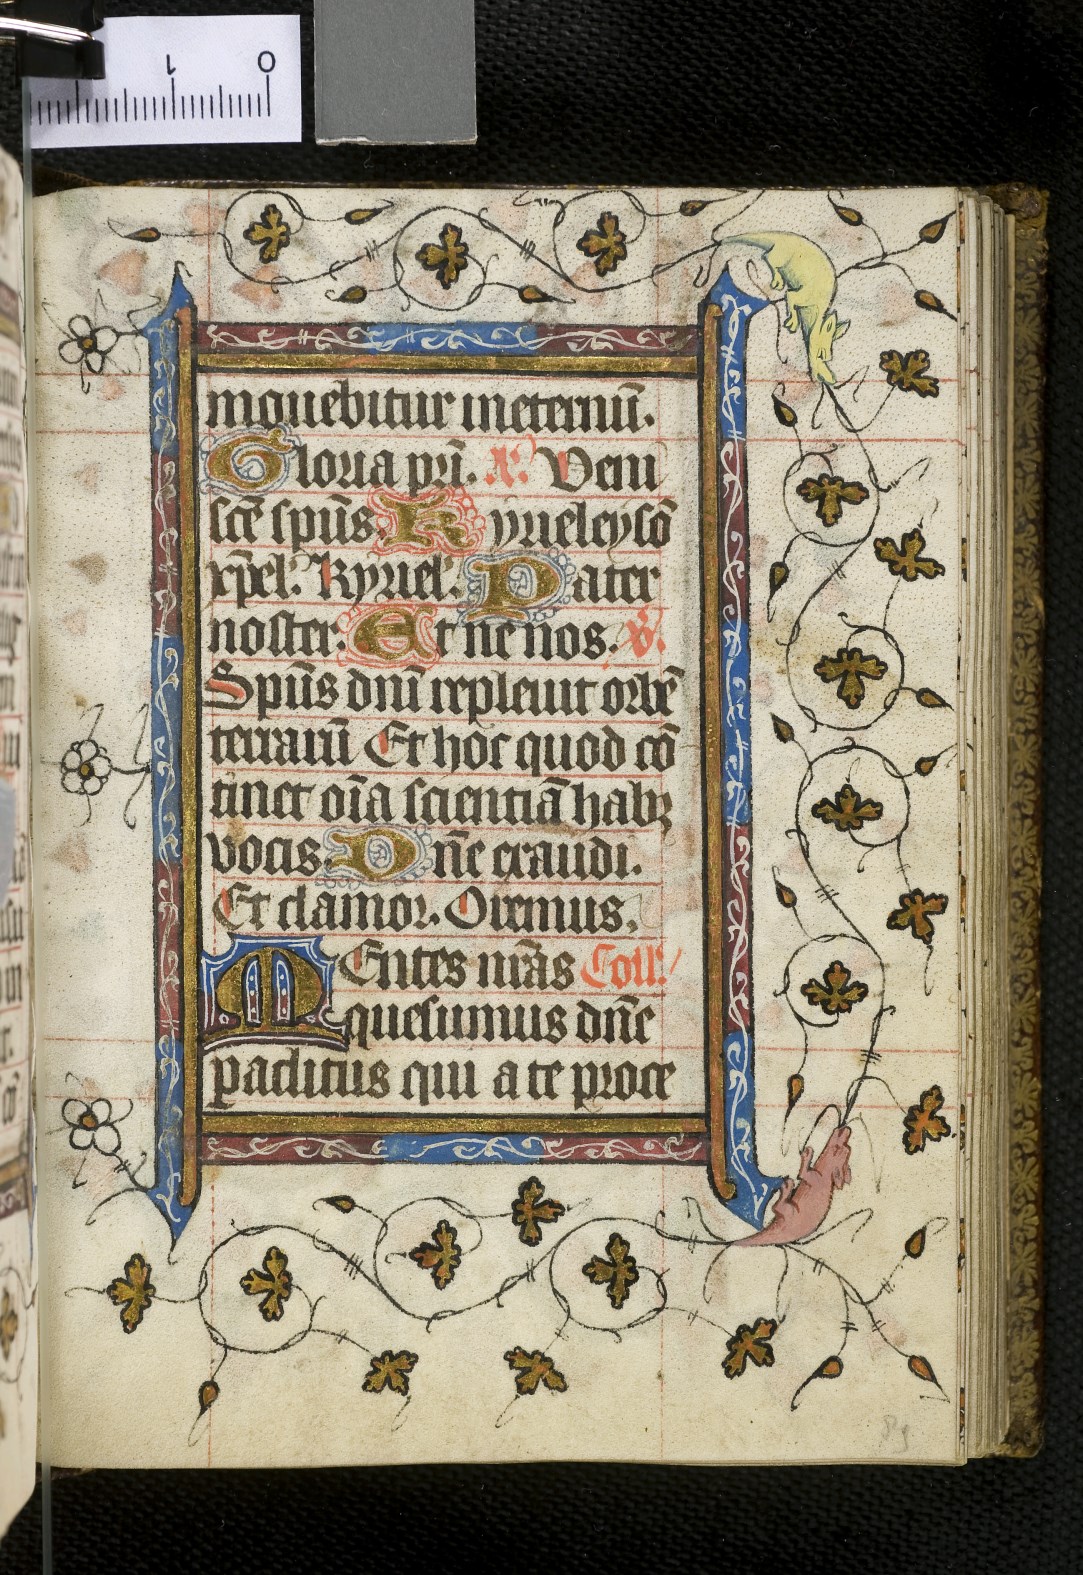 1 0
mouebitur ineternū.
Gloria pr̄i. A̅. Veni
sc̄e sp̄us. Kyrieleysō
xp̄el'. Kyriel'. Pater
noster. Et ne nos. V̅.
Sp̄us dn̄i repleuit orbē
terrarū Et hoc quod cō
tinet oīa scientiā habꝫ
vocis. Dn̄e exaudi.
Et clamor. Oremus.
MEntes nr̄as Coll'.
quesumus dn̄e
paclitus qui a te proce
89